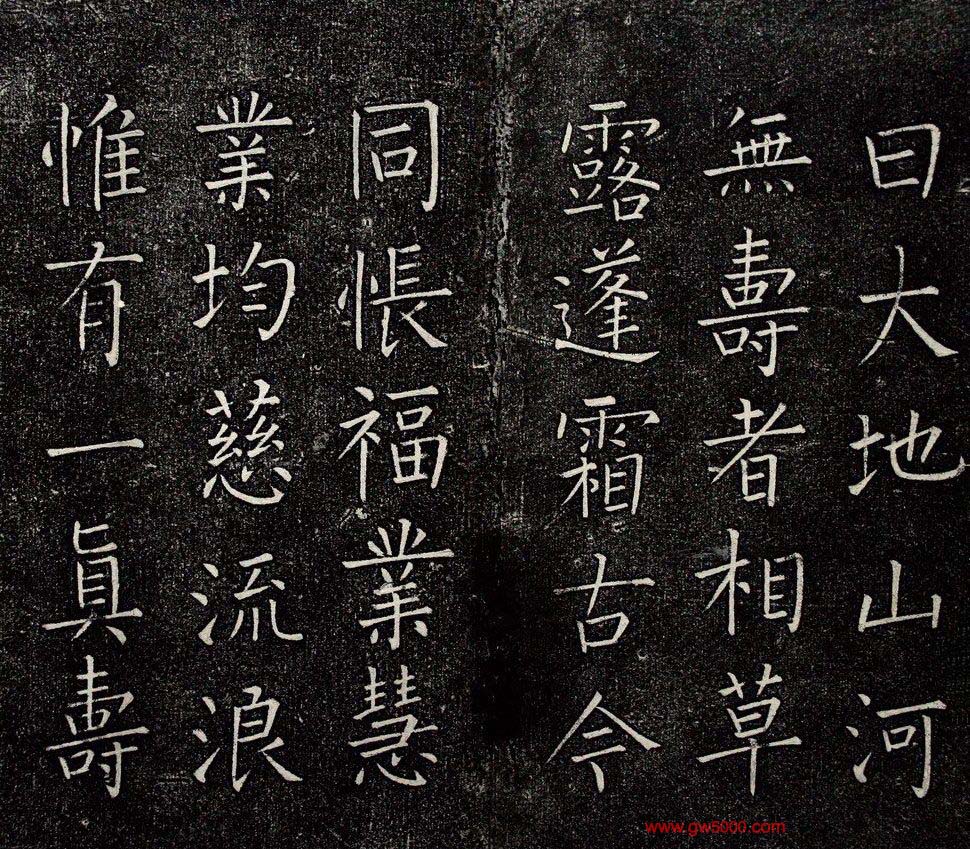 曰大地山河
無壽者相草
露蓬霜古今
同悵福業慧
業均慈流浪
惟有一真壽
www.gw5000.com